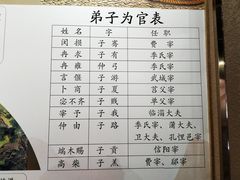 弟子为官表
姓名 字 任职
闵损 子骞 费宰
冉求 子有 季氏宰
冉雍 仲弓 季氏宰
言偃 子游 武城宰
卜商 子夏 莒父宰
宓不齐 子贱 单父宰
宰予 子我 临淄大夫
仲由 子路 季氏宰、蒲大夫、
卫大夫、孔悝邑宰
端木赐 子贡 信阳宰
高柴 子羔 费宰、郈宰